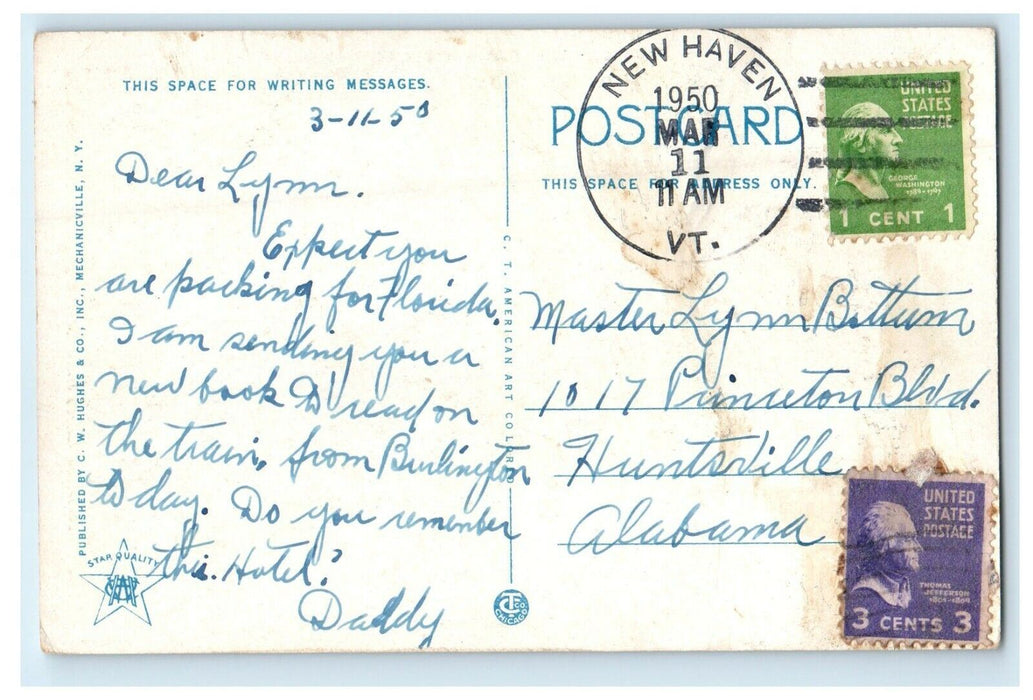 THIS SPACE FOR WRITING MESSAGES.
3-11-50
Dear Lynn.
Expect you
are packing for Florida.
I am sending you a
new book to read on
the train, from Burlington
to day. Do you remember
this. Hotel?
Daddy
PUBLISHED BY C. W. HUGHES & CO., INC., MECHANICVILLE, N. Y.
STAR QUALITY
C. T. AMERICAN ART COLORED
CT CO.
CHICAGO
NEW HAVEN
1950
MAR
11
11 AM
VT.
POSTCARD
THIS SPACE FOR ADDRESS ONLY.
UNITED
STATES
POSTAGE
GEORGE
WASHINGTON
1789-1797
1 CENT 1
Master Lynn Bottum
1017 Princeton Blvd.
Huntsville
Alabama
UNITED
STATES
POSTAGE
THOMAS
JEFFERSON
1801-1809
3 CENTS 3